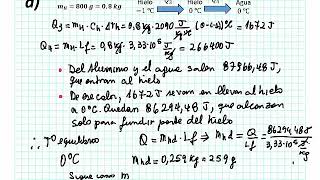 a)
m_H = 800 g = 0,8 kg
Hielo
Agua
-1 °C
0 °C
0 °C
Q₃ = m_H · C_h · ΔT_H = 0,8 kg · 2090 J/kg°C (0-(-1)) °C = 1672 J
Q₄ = m_H · L_f = 0,8 kg · 3,33·10⁵ J/kg = 266400 J
• Del Aluminio y el agua salen 87966,48 J,
que entran al hielo
• De ese calor, 1672 J sirven en llevar al hielo
a 0°C. Quedan 86294,48 J, que alcanzan
solo para fundir parte del hielo
∴ Tº equilibrio
0°C
Q = m_hd · L_f ⇒ m_hd = Q/L_f = 86294,48 J / 3,33·10⁵ J/kg
m_hd = 0,259 kg = 259 g
Sigue como m